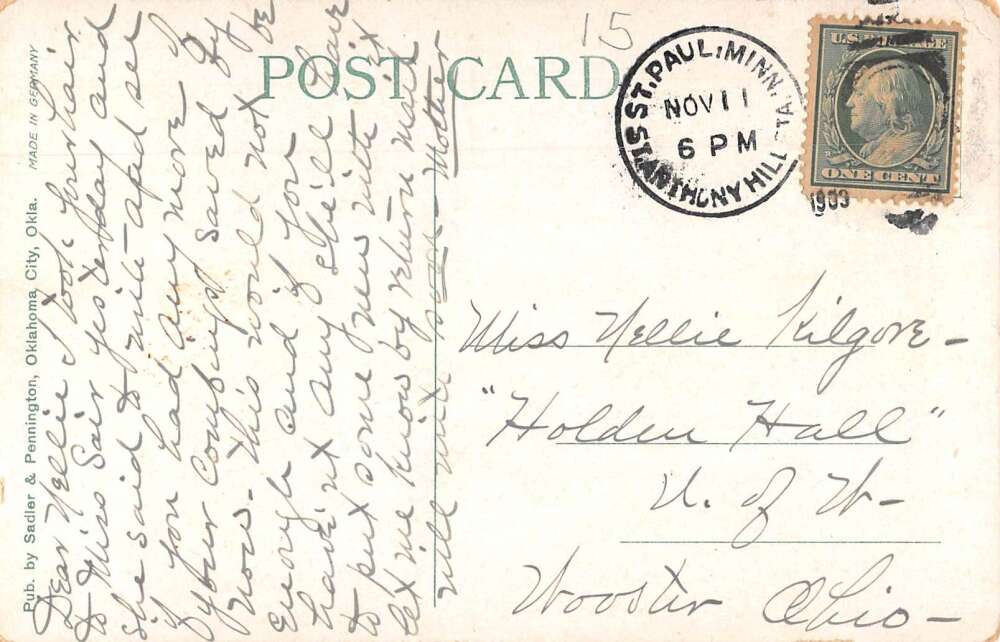 POST CARD
15
ST. PAUL, MINN.
ST. ANTHONY HILL STA.
NOV 11
6 PM
1909
U.S. POSTAGE
ONE CENT
MADE IN GERMANY
Pub. by Sadler & Pennington, Oklahoma City, Okla.
Dear Nellie I took your hair
to Miss Sair yesterday and
she said to write and see
if you had any more of
your combings saved by
now. This would not be
enough and if you
haven't any still have
to put some new with it
let me know by return mail
will write soon - Mother
Miss Nellie Kilgore -
"Holden Hall"
U. of W -
Wooster Ohio -